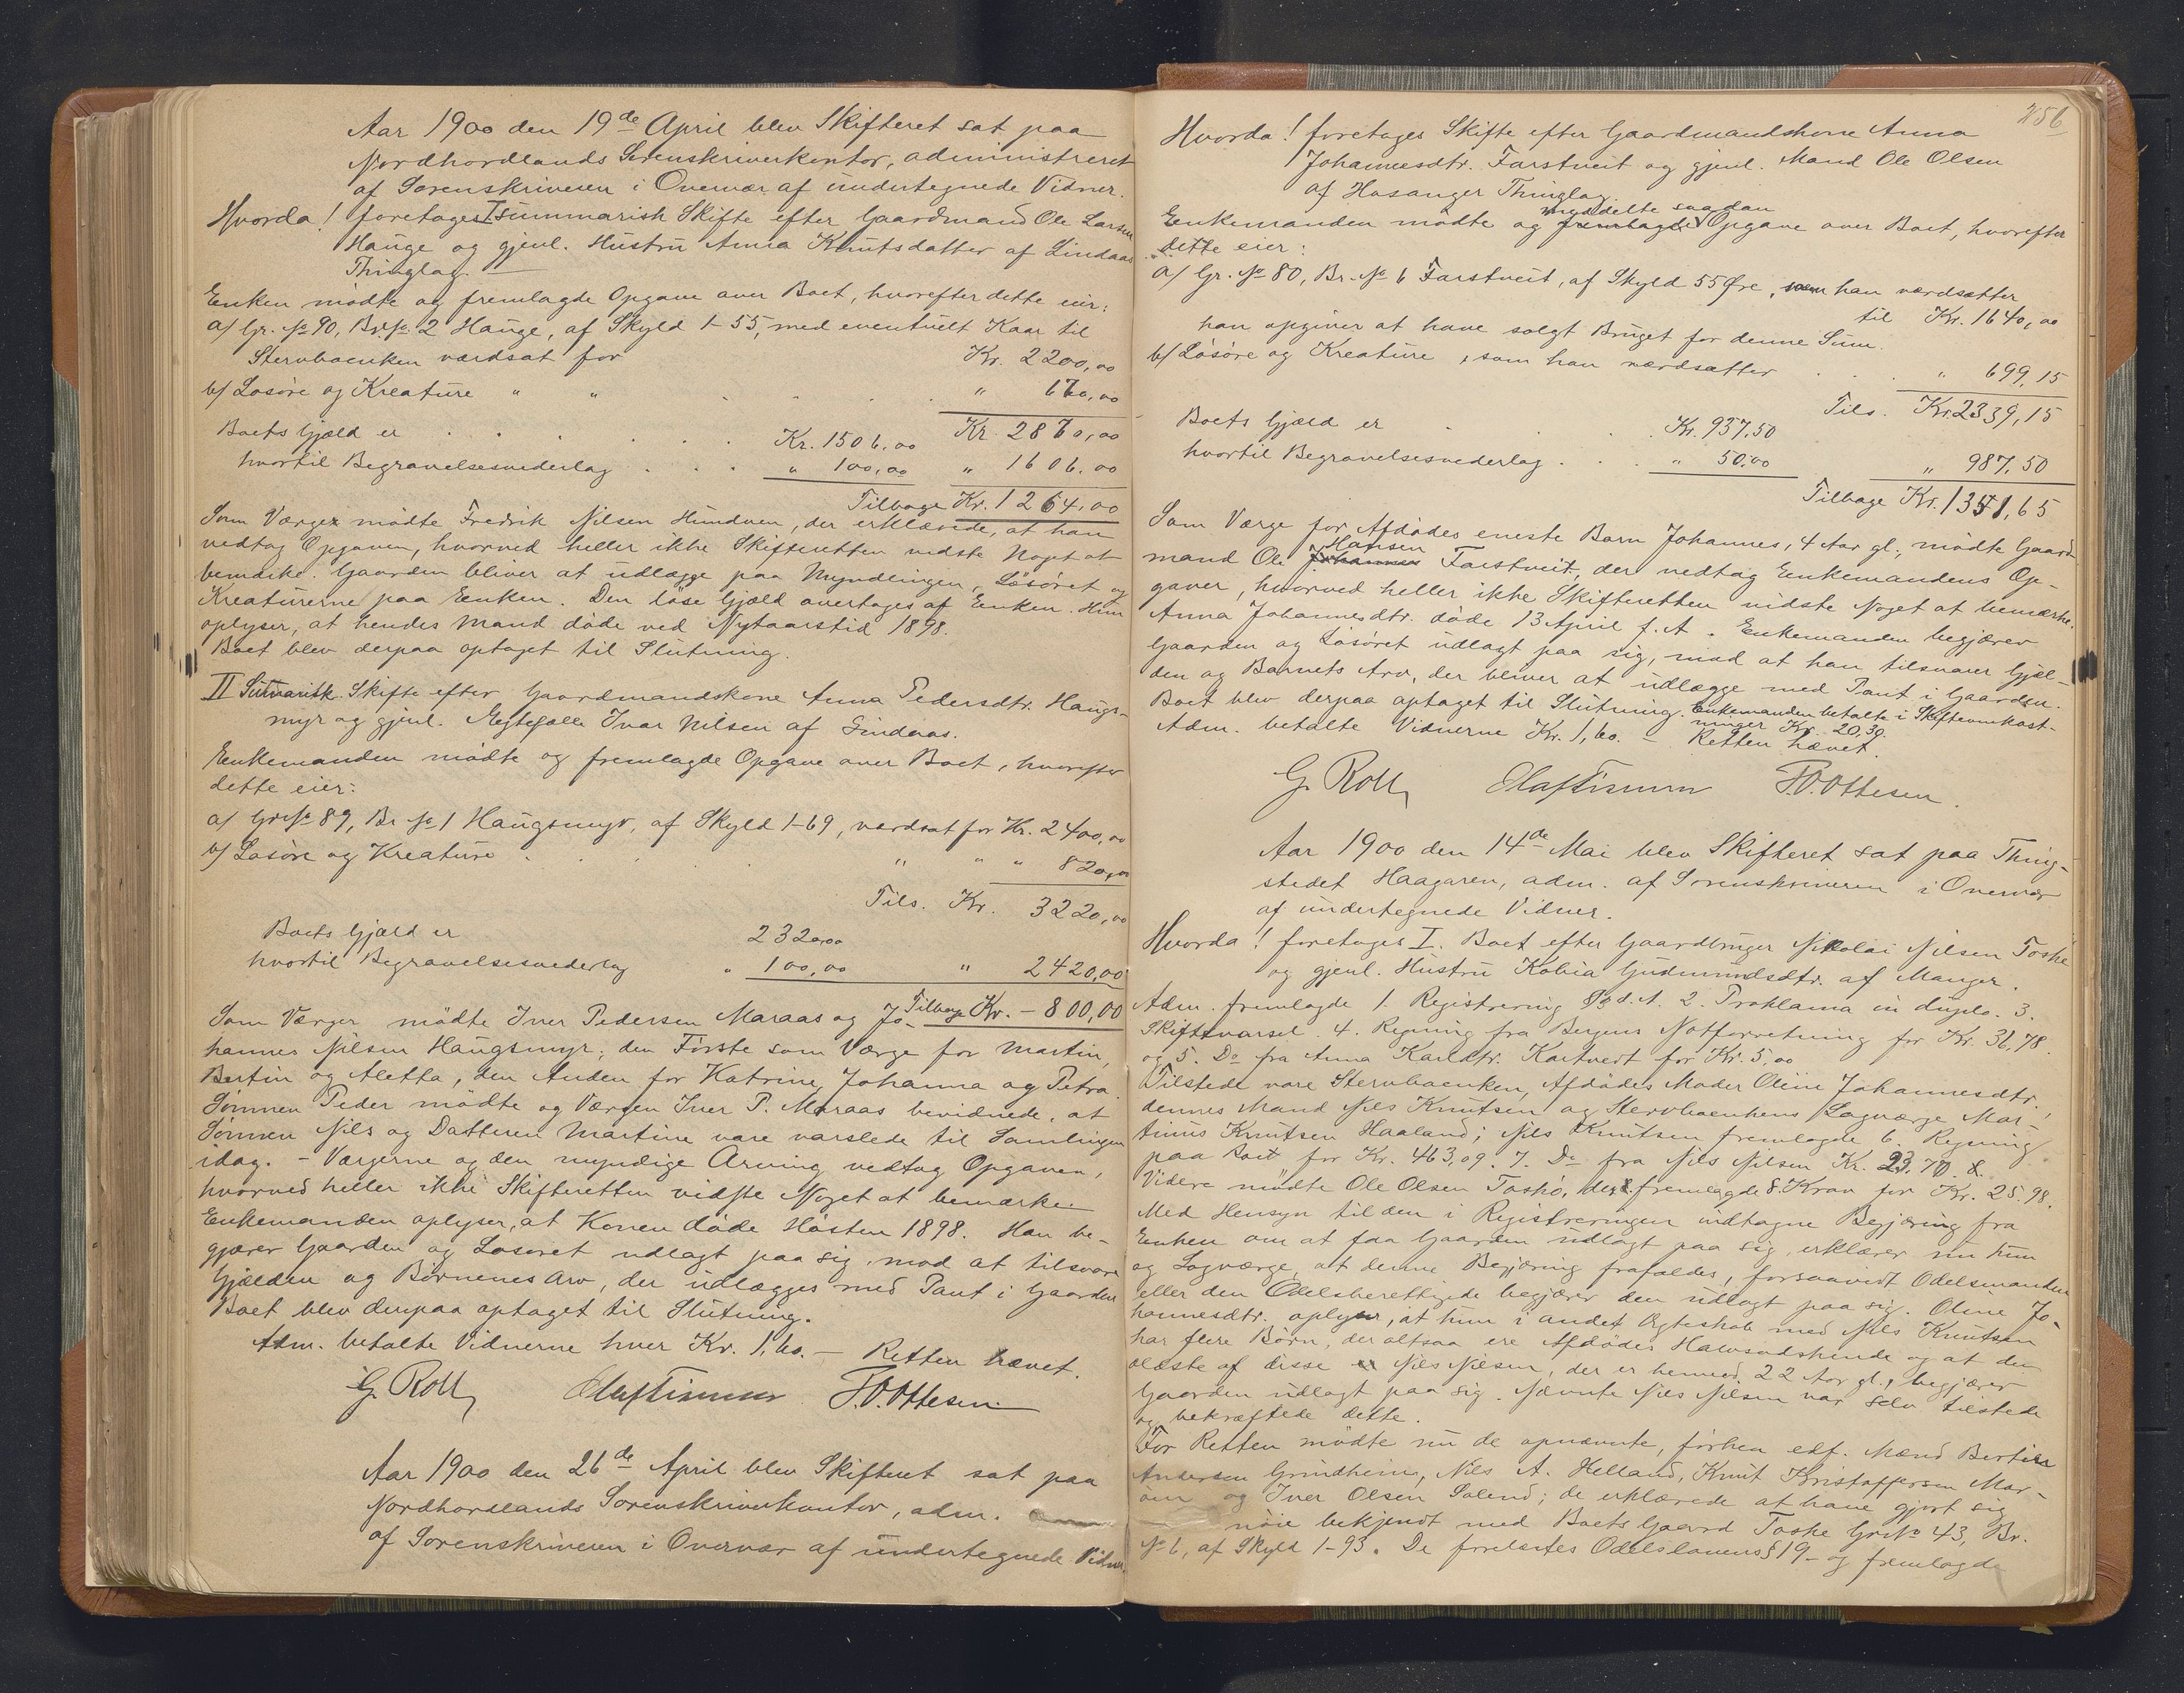 Aar 1900 den 19de April blev Skifteret sat paa
Nordhordlands Sorenskriverkontor, administreret
af Sorenskriveren i Overvær af undertegnede Vidner.
Hvorda! foretages I summarisk Skifte efter Gaardmand Ole Larsen
Hauge og gjenl. Hustru Anna Knutsdatter af Lindaas
Thinglag. —
Enken mødte og fremlagde Opgave over Boet, hvorefter dette eier:
a/ Gr. No 90, Br. No 2 Hauge, af Skyld 1-55, med eventuelt Kaar til
Stervboenken værdsat for Kr. 2200,00
b/ Løsøre og Kreature " " " 670,00
Kr. 2870,00
Boets Gjæld er . . . . . . Kr. 1506,00
hvortil Begravelsesvederlag . . . " 100,00 " 1606.00
Tilbage Kr. 1264,00
Som Værge mødte Fredrik Nilsen Hundven, der erklærede, at han
vedtog Opgaven, hvorved heller ikke Skifteretten vidste Noget at
bemærke. Gaarden bliver at udlægge paa Myndlingen, Løsøret og
Kreaturerne paa Enken. Den løse Gjæld overtages af Enken. Hun
oplyser, at hendes Mand døde ved Nytaarstid 1898.
Boet blev derpaa optaget til Slutning.
II Summarisk Skifte efter Gaardmandskone Anna Pedersdtr. Haugs-
myr og gjenl. Egtefælle Ivar Nilsen af Lindaas.
Enkemanden mødte og fremlagde Opgave over Boet, hvorefter
dette eier:
a/ Gr No 89, Br No 1 Haugsmyr, af Skyld 1-69, værdsat for Kr. 2400,00
b/ Løsøre og Kreature . . . " " " 820,00
Tils. Kr. 3220,00
Boets Gjæld er 2320,00
hvortil Begravelsesvederlag " 100,00 " 2420,00
Tilbage Kr. - 800,00
Som Værger mødte Iver Pedersen Maraas og Jo-
hannes Nilsen Haugsmyr; den Første som Værge for Martin,
Bertin og Aletta, den Anden for Katrine, Johanna og Petra.
Sønnen Peder mødte og Værgen Iver P. Maraas bevidnede, at
Sønnen Nils og Datteren Martine vare varslede til Samlingen
idag. - Værgerne og den myndige Arving vedtog Opgaven,
hvorved heller ikke Skifteretten vidste Noget at bemærke.
Enkemanden oplyser, at Konen døde Høsten 1898. Han be-
gjærer Gaarden og Løsøret udlagt paa sig, mod at tilsvare
Gjælden og Børnenes Arv, der udlægges med Pant i Gaarden
Boet blev derpaa optaget til Slutning.
Adm. betalte Vidnerne hver Kr. 1,60. — Retten hævet.
G. Roll Olaf F.O. Ottesen.
Aar 1900 den 26de April blev Skifteret sat paa
Nordhordlands Sorenskriverkontor, adm.
af Sorenskriveren i Overvær af undertegnede Vidner.
256
Hvorda! foretages Skifte efter Gaardmandskone Anna
Johannesdtr. Farstveit og gjenl. Mand Ole Olsen
af Hosanger Thinglag.
meddelte saadan
Enkemanden mødte og fremlagde Opgave over Boet, hvorefter
dette eier:
a/ Gr. No 80, Br. No 6 Farstveit, af Skyld 55 Øre, som han værdsætter
til Kr. 1640,00
han opgiver at have solgt Bruget for denne Sum.
b/ Løsøre og Kreature, som han værdsætter . . . " 699,15
Tils. Kr. 2339,15
Boets Gjæld er . . Kr. 937,50
hvortil Begravelsesvederlag . . . " 50,00 " 987,50
Tilbage Kr. 1351,65
Som Værge for Afdødes eneste Barn Johannes, 4 Aar gl., mødte Gaard-
Hansen
mand Ole Johannes Farstveit, der vedtog Enkemandens Op-
gaver, hvorved heller ikke Skifteretten vidste Noget at bemærke.
Anna Johannesdtr. døde 13 April f. A. Enkemanden begjærer
Gaarden og Løsøret udlagt paa sig, mod at han tilsvarer Gjæl-
den og Barnets Arv, der bliver at udlægge med Pant i Gaarden.
Boet blev derpaa optaget til Slutning. Enkemanden betalte i Skifteomkost-
ninger Kr. 20,30.
Adm. betalte Vidnerne Kr. 1,60. — Retten hævet.
G. Roll Olaf F.O. Ottesen.
Aar 1900 den 14de Mai blev Skifteret sat paa Thing-
stedet Haagaren, adm. af Sorenskriveren i Overvær
af undertegnede Vidner.
Hvorda! foretages I. Boet efter Gaardbruger Nikolai Nilsen Toske
og gjenl. Hustru Kobia Gudmundsdtr. af Manger.
Adm. fremlagde 1. Registrering d. A. 2. Proklama in duplo. 3.
Skiftevarsel. 4. Regning fra Bergens Notforretning for Kr. 36,78.
og 5. Do fra Anna Karldtr. Kartveit for Kr. 5,00
Tilstede vare Stervboenken, Afdødes Moder Oline Johannesdtr.,
dennes Mand Nils Knutsen og Stervboenkens Lagværge Mar-
tinus Knutsen Haaland; Nils Knutsen fremlagde 6. Regning
paa Boet for Kr. 463,09. 7. Do fra Nils Nilsen Kr. 23.70. &.
Videre mødte Ole Olsen Toskø, der fremlagde 8. Krav for Kr. 25.98.
Med Hensyn til den i Registreringen indtagne Begjæring fra
Enken om at faa Gaarden udlagt paa sig, erklærer nu hun
og Lagværge, at denne Begjæring frafaldes, forsaavidt Odelsmanden
eller den Odelsberettigede begjærer den udlagt paa sig. Oline Jo-
hannesdtr. oplyser, at hun i andet Ægteskab med Nils Knutsen
har flere Børn, der altsaa ere Afdødes Halvsødskende og at den
ældste af disse er Nils Nilsen, der er henved 22 Aar gl., begjærer
Gaarden udlagt paa sig. Nævnte Nils Nilsen var selv tilstede
og bekræftede dette.
For Retten mødte nu de opnævnte, forhen edf. Mænd Bertin
Andersen Grindheim, Nils A. Helland, Knut Kristoffersen Mar-
øen og Iver Olsen Solend; de erklærede at have gjort sig
nøie bekjendt med Boets Gaard Toske Gr No 43, Br.
No 6, af Skyld 1-93. De forelæstes Odelslovens § 19 - og fremlagde